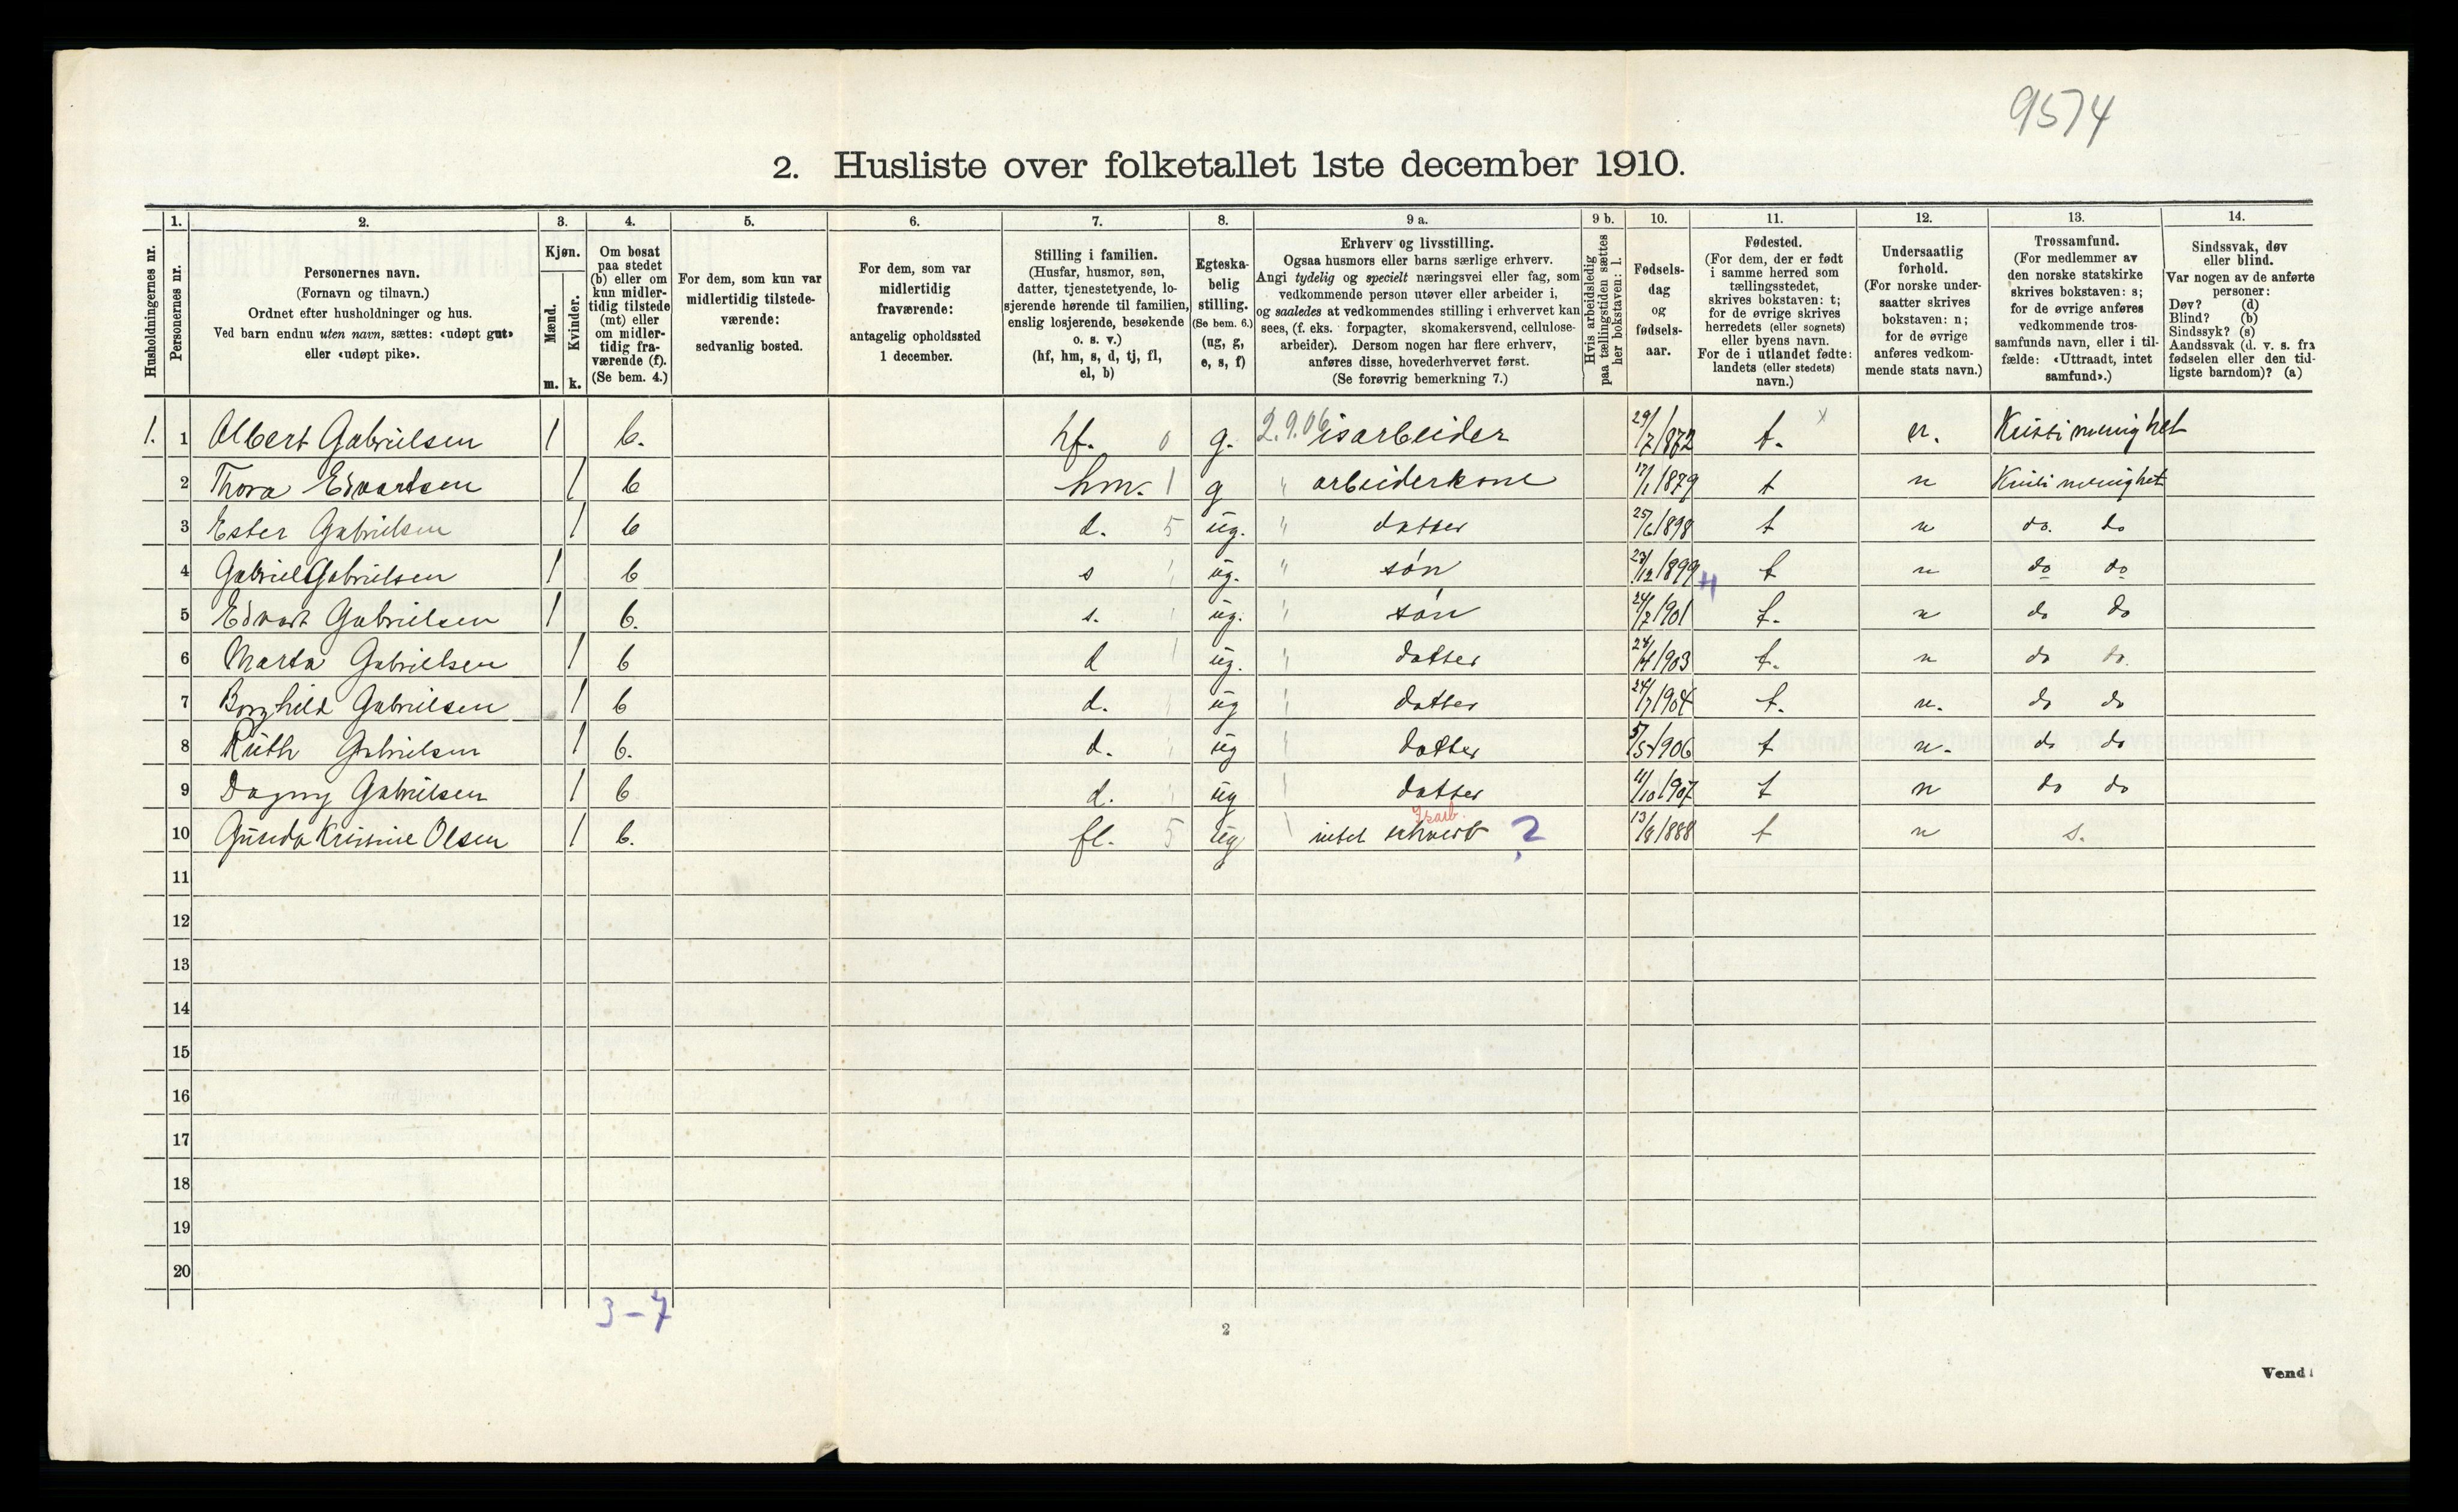 9574
2. Husliste over folketallet 1ste december 1910.
Husholdningernes nr.
1. Personernes nr.
2. Personernes navn. (Fornavn og tilnavn.) Ordnet efter husholdninger og hus. Ved barn endnu uten navn, sættes: «udøpt gut» eller «udøpt pike».
3. Kjøn. Mænd. m. Kvinder. k.
4. Om bosat paa stedet (b) eller om kun midlertidig tilstede (mt) eller om midlertidig fraværende (f). (Se bem. 4.)
5. For dem, som kun var midlertidig tilstedeværende: sedvanlig bosted.
6. For dem, som var midlertidig fraværende: antagelig opholdssted 1 december.
7. Stilling i familien. (Husfar, husmor, søn, datter, tjenestetyende, losjerende hørende til familien, enslig losjerende, besøkende o. s. v.) (hf, hm, s, d, tj, fl, el, b)
8. Egteskabelig stilling. (Se bem. 6.) (ug, g, e, s, f)
9 a. Erhverv og livsstilling. Ogsaa husmors eller barns særlige erhverv. Angi tydelig og specielt næringsvei eller fag, som vedkommende person utøver eller arbeider i, og saaledes at vedkommendes stilling i erhvervet kan sees, (f. eks. forpagter, skomakersvend, cellulosearbeider). Dersom nogen har flere erhverv, anføres disse, hovederhvervet først. (Se forøvrig bemerkning 7.)
9 b. Hvis arbeidsledig paa tællingstiden sættes her bokstaven: l.
10. Fødselsdag og fødselsaar.
11. Fødested. (For dem, der er født i samme herred som tællingsstedet, skrives bokstaven: t; for de øvrige skrives herredets (eller sognets) eller byens navn. For de i utlandet fødte: landets (eller stedets) navn.)
12. Undersaatlig forhold. (For norske undersaatter skrives bokstaven: n; for de øvrige anføres vedkommende stats navn.)
13. Trossamfund. (For medlemmer av den norske statskirke skrives bokstaven: s; for de øvrige anføres vedkommende trossamfunds navn, eller i tilfælde: «Uttraadt, intet samfund».)
14. Sindssvak, døv eller blind. Var nogen av de anførte personer: Døv? (d) Blind? (b) Sindssyk? (s) Aandssvak (d. v. s. fra fødselen eller den tidligste barndom)? (a)
1. 1 Albert Gabrielsen 1 b. hf. 0 g. 2.9.06 isarbeider 29/7/872 t. x n. Kristi menighet
2 Thora Edvartsen 1 b hm. 1 g " arbeiderkone 17/1/1879 t n Kristi menighet
3 Ester Gabrielsen 1 b d. 5 ug. " datter 25/6/1898 t n do. do
4 Gabriel Gabrielsen 1 b s ug. " søn 23/12/1899 4 t n do do
5 Edvart Gabrielsen 1 b. s. ug. " søn 24/7/1901 t. n do do
6 Marta Gabrielsen 1 b d ug. " datter 24/4/1903 t. n do do.
7 Borghild Gabrielsen 1 b d. ug " datter 24/7/1904 t. n. do do
8 Ruth Gabrielsen 1 b. d. ug datter 5/5/1906 t n. do do
9 Dagny Gabrielsen 1 b d. ug datter 11/10/1907 t n do do
10 Gunda Kristine Olsen 1 b. fl. 5 ug intet erhverv Isarb. ? 13/8/1888 t n s.
11
12
13
14
15
16
17
18
19
20
3 – 7
2
Vend!